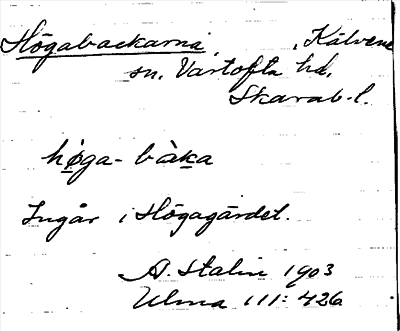 Högabackarna, Kälvene
sn. Vartofta hd.
Skarab.l.
höga-bàka
Ingår i Högagärdet.
A. Stalin 1903
Ulma 111:426